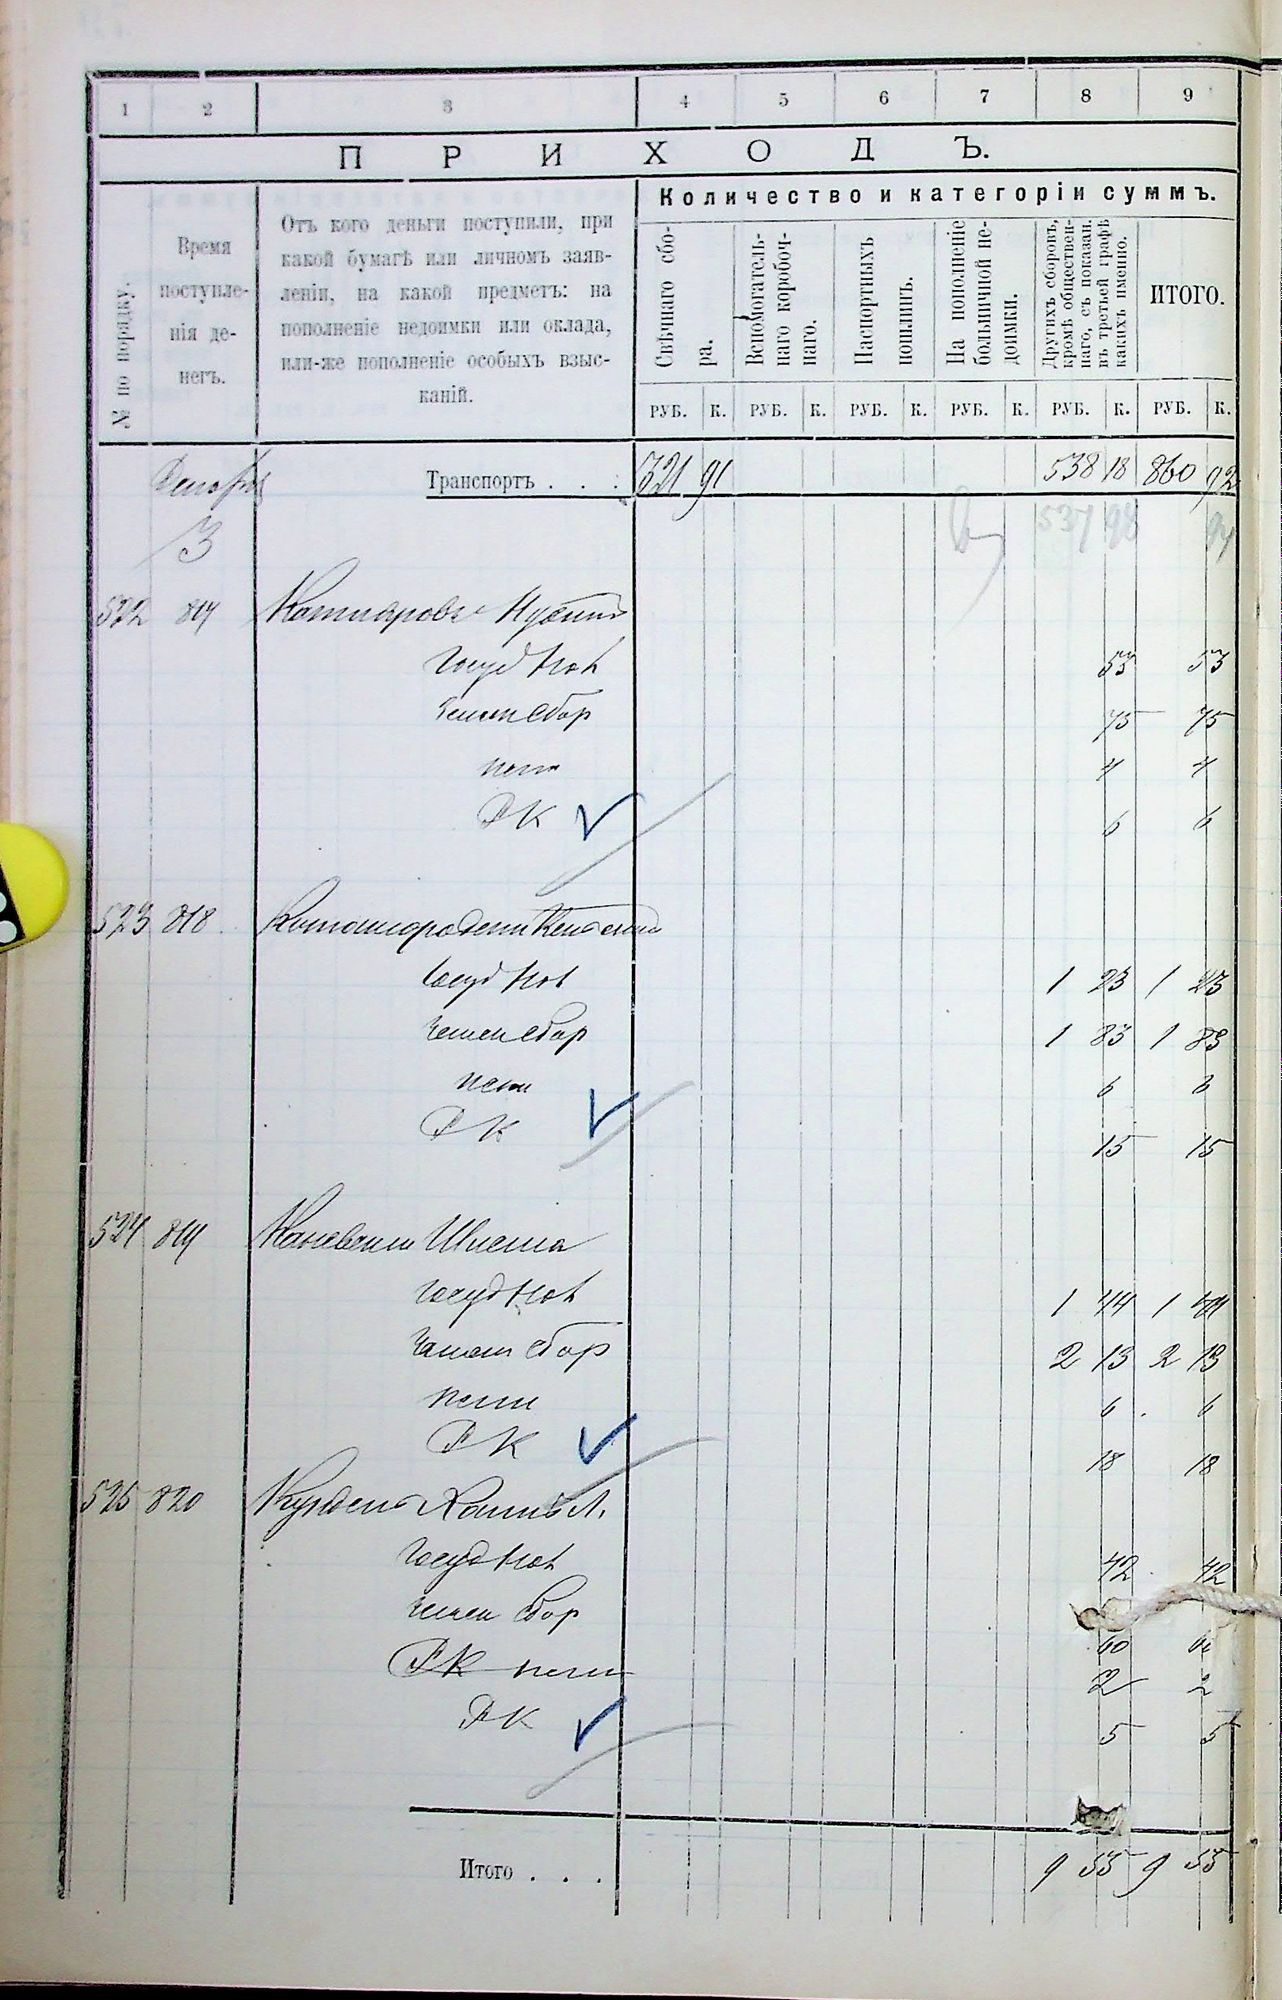 1 2 3 4 5 6 7 8 9
ПРИХОДЪ.
№ по порядку.
Время поступле-
нія де-
негъ.
Отъ кого деньги поступили, при
какой бумагѣ или личномъ заяв-
леніи, на какой предметъ: на
пополненіе недоимки или оклада,
или-же пополненіе особыхъ взыс-
каній.
Количество и категоріи суммъ.
Свѣчнаго сбо-
ра.
Вспомогатель-
наго коробоч-
наго.
Паспортныхъ
пошлинъ.
На пополненіе
больничной не-
доимки.
Другихъ сборовъ,
кромѣ обществен-
наго, съ показан.
въ третьей графѣ
какихъ именно.
ИТОГО.
РУБ. К. РУБ. К. РУБ. К. РУБ. К. РУБ. К. РУБ. К.
Транспортъ . . . 321 91 538 18 860 92
537 98
3
522
Госуд Пол 53 53
Земск Сбор 75 75
пени 4 4
РК 6 6
523 818
Госуд Пол 1 23 1 23
Земск Сбор 1 83 1 83
пени 6 6
РК 15 15
524 819 Каневский
Госуд Пол 1 44 1 44
Земск Сбор 2 13 2 13
пени 6 6
РК 18 18
525 820
Госуд Пол 42 42
Земск Сбор 60 60
РК пени 2 2
РК 5 5
Итого . . . 9 55 9 55